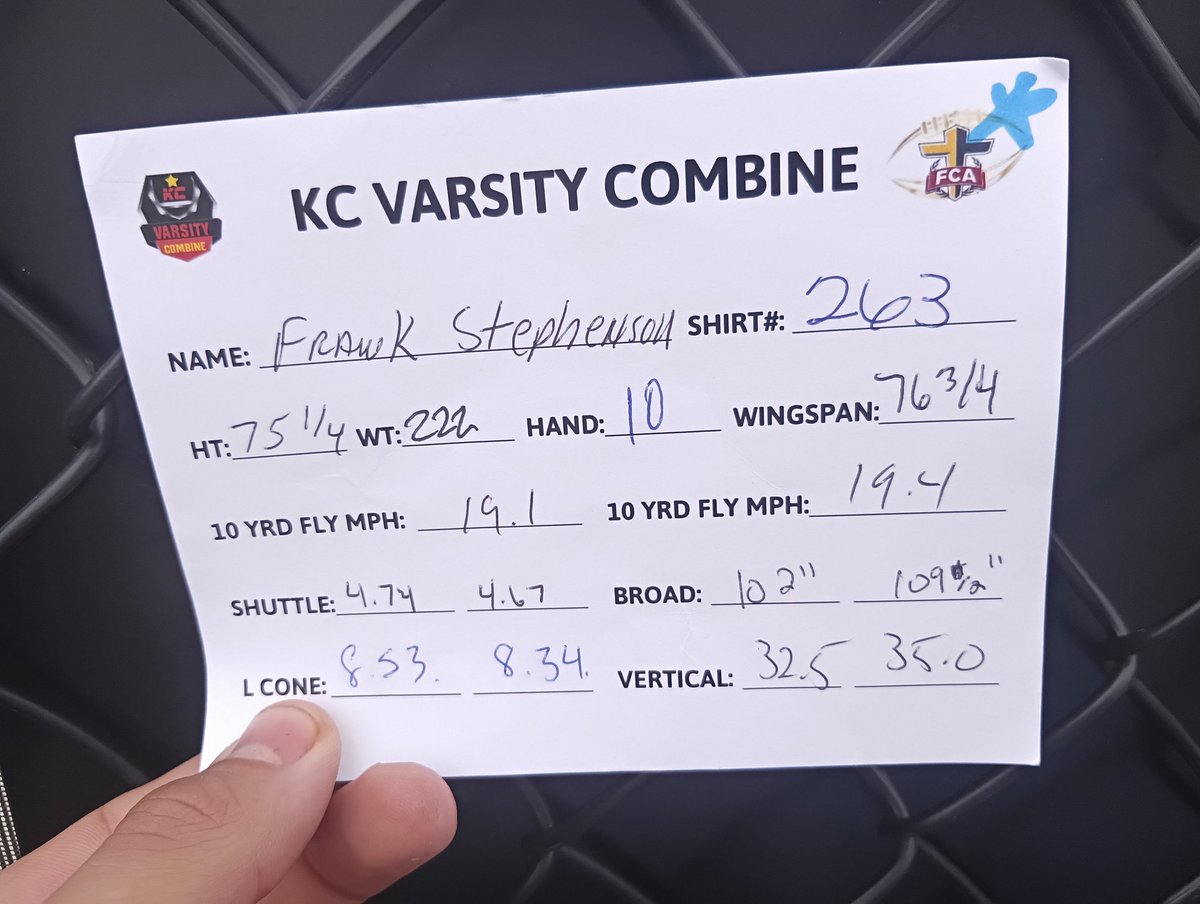 KC VARSITY COMBINE
KC
VARSITY
COMBINE
FCA
NAME: Frank Stephenson SHIRT#: 263
HT: 75 1/4 WT: 222 HAND: 10 WINGSPAN: 76 3/4
10 YRD FLY MPH: 19.1 10 YRD FLY MPH: 19.4
SHUTTLE: 4.74 4.67 BROAD: 102" 109 1/2"
L CONE: 8.53. 8.34. VERTICAL: 32.5 35.0